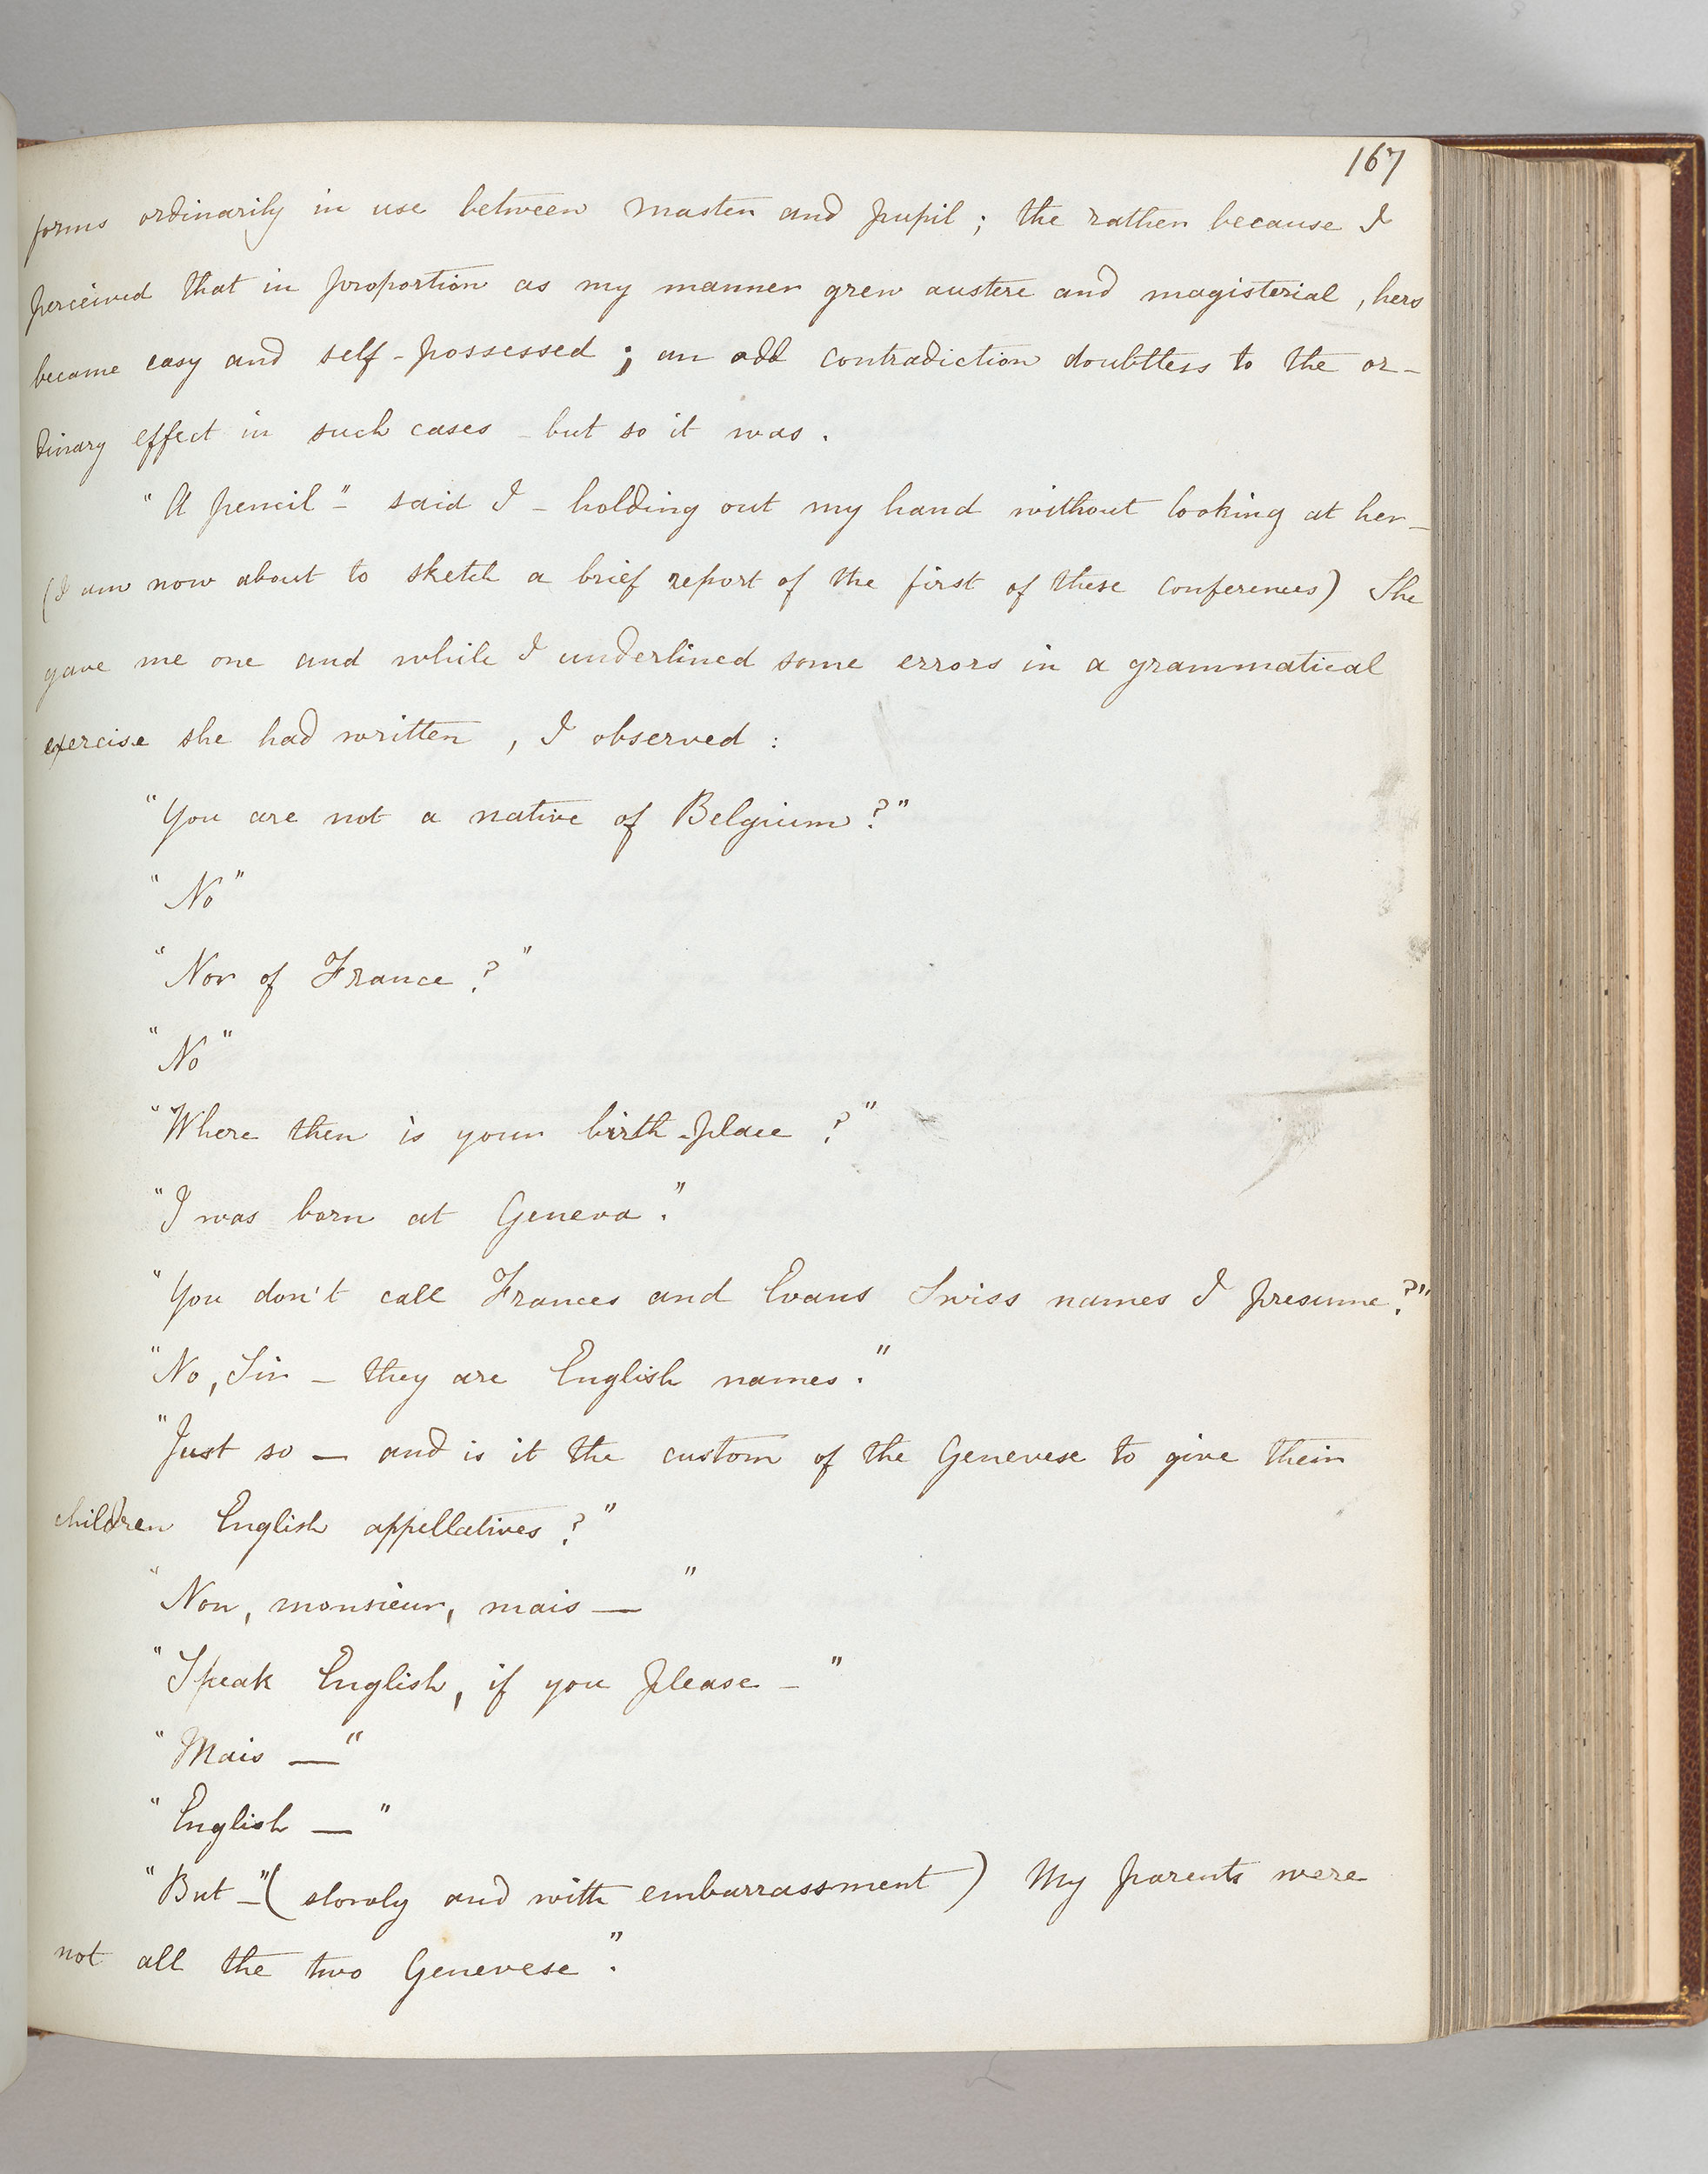 167
forms ordinarily in use between master and pupil ; the rather because I
perceived that in proportion as my manner grew austere and magisterial , hers
became easy and self-possessed ; an odd contradiction doubtless to the or-
dinary effect in such cases - but so it was .
"A pencil"- said I - holding out my hand without looking at her-
(I am now about to sketch a brief report of the first of these conferences) She
gave me one and while I underlined some errors in a grammatical
exercise she had written , I observed :
"You are not a native of Belgium ?"
"No"
"Nor of France ?"
"No"
"Where then is your birth-place ?"
"I was born at Geneva."
"You don't call Frances and Evans Swiss names I presume ?"
"No, Sir - they are English names."
"Just so — and is it the custom of the Genevese to give their
children English appellatives ?"
"Non, monsieur, mais — "
"Speak English, if you please - "
"Mais —"
"English — "
"But -"( slowly and with embarrassment ) My parents were
not all the two Genevese ."